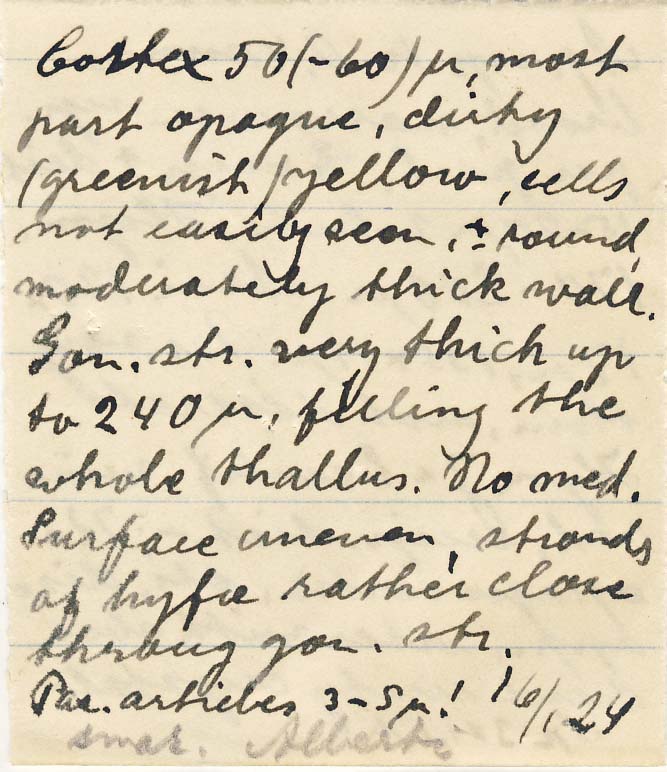 Cortex 50(-60)µ, most
part opaque, dirty
(greenish) yellow, cells
not easily seen, ± round,
moderately thick wall.
Gon. str. very thick up
to 240 µ, filling the
whole thallus. No med.
Surface uneven, strands
of hyfæ rather close
throug gon. str.
Par. articles 3-5µ! 16/1 24
smar. Alberti